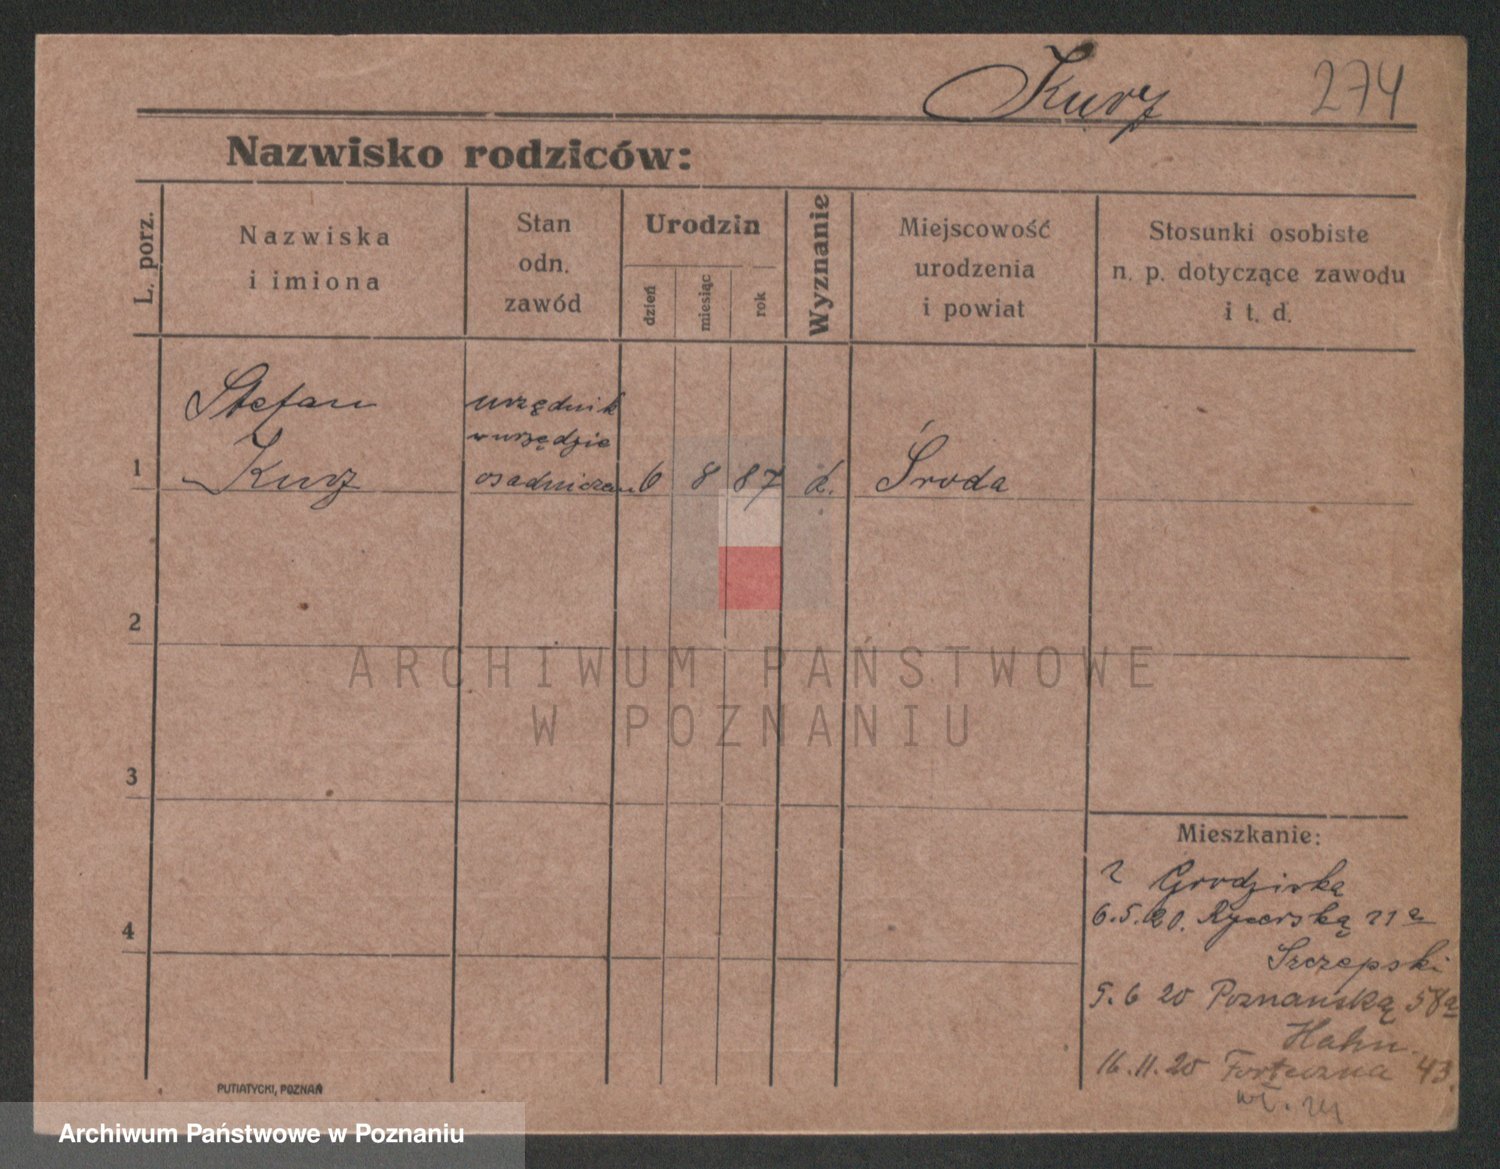 Kurz 274
Nazwisko rodziców:
L. porz.
Nazwiska
i imiona
Stan
odn.
zawód
Urodzin
dzień
miesiąc
rok
Wyznanie
Miejscowość
urodzenia
i powiat
Stosunki osobiste
n. p. dotyczące zawodu
i t. d.
Stefan urzędnik
w urzędzie
1 Kurz osadniczem 6 8 87 k. Środa
2
3
4
Mieszkanie:
z Grodziska
6.5.20. Rycerską
Szczepski
5.6 20 Poznańską 58a
Hahn
16.11.20 Forteczna 43.
PUTIATYCKI, POZNAŃ
ARCHIWUM PAŃSTWOWE
W POZNANIU
Archiwum Państwowe w Poznaniu